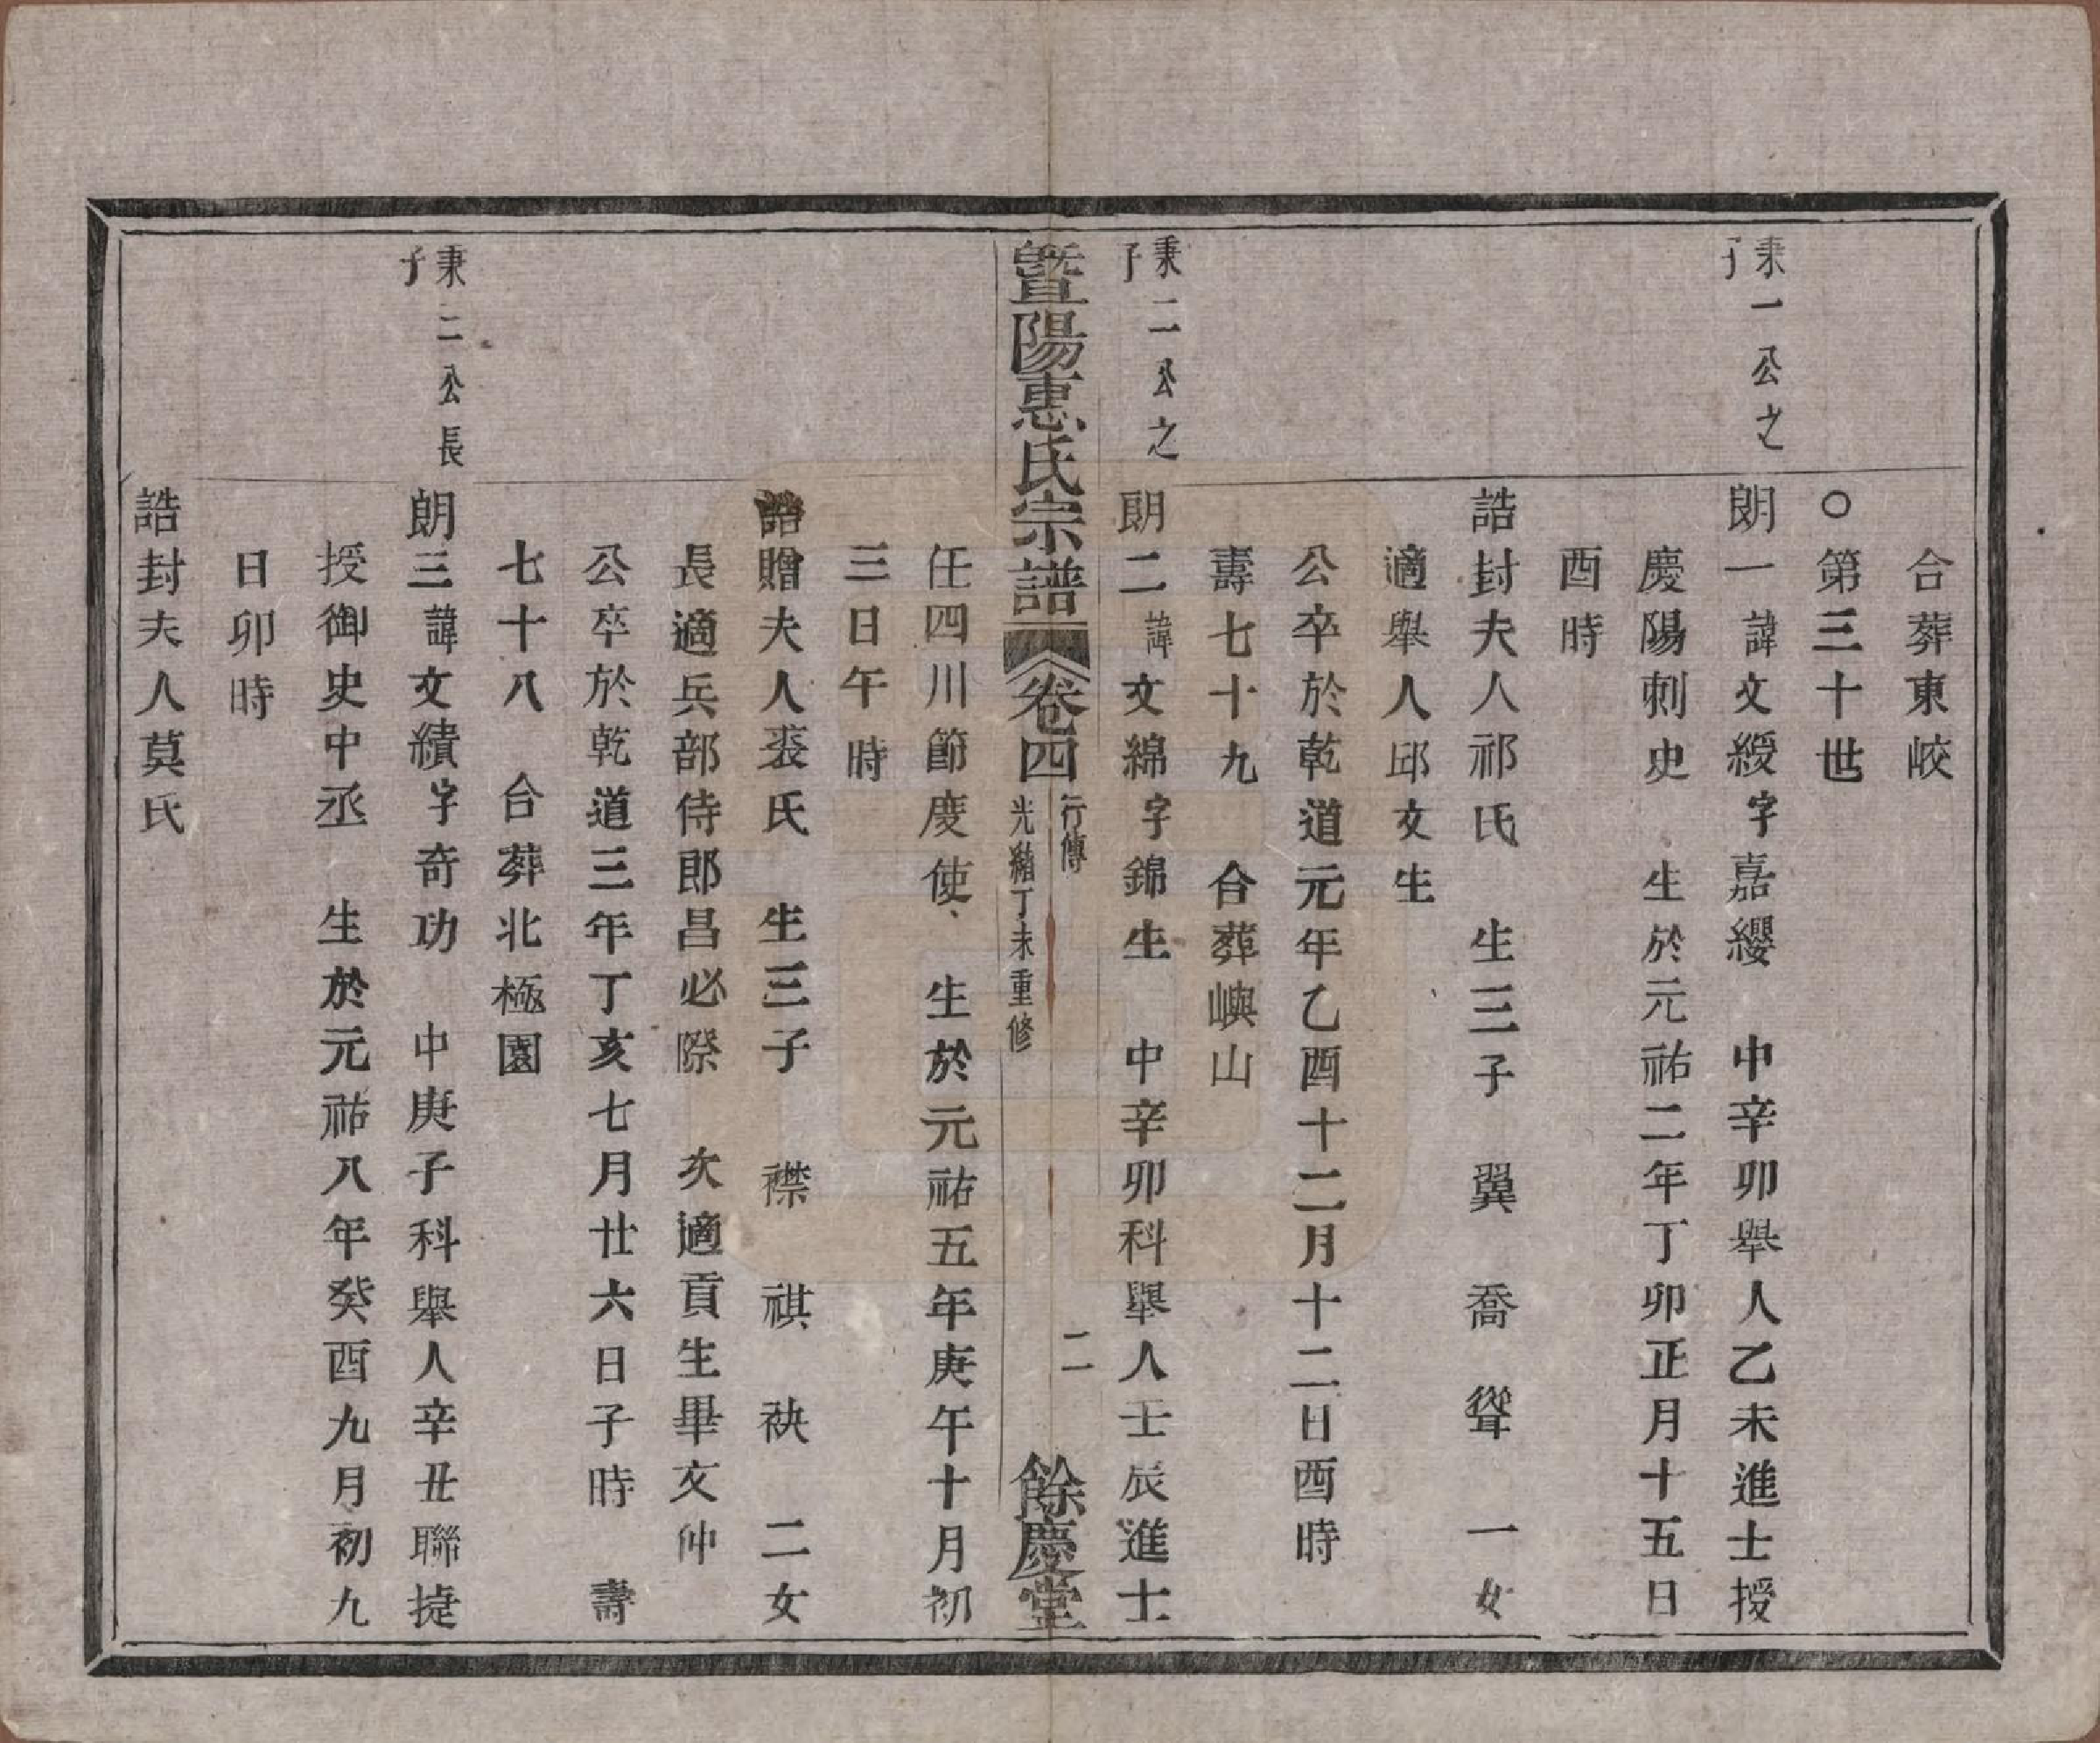 合葬東峧
○第三十世
秉一公之
子
朗一諱文綬字嘉纓　中辛卯舉人乙未進士授
慶陽刺史　生於元祐二年丁卯正月十五日
酉時
誥封夫人祁氏　生三子　翼　喬　聳　一女
適舉人邱文生
公卒於乾道元年乙酉十二月十二日酉時
壽七十九　合葬嶼山
秉二公之
子
朗二諱文綿字錦生　中辛卯科舉人壬辰進士
暨陽惠氏宗譜　卷四　行傳　光緒丁未重修　二　餘慶堂
任四川節度使　生於元祐五年庚午十月初
三日午時
誥贈夫人裘氏　生三子　襟　祺　袂　二女
長適兵部侍郎昌必際　次適貢生畢文仲
公卒於乾道三年丁亥七月廿六日子時　壽
七十八　合葬北極園
秉二公長
子
朗三諱文績字奇功　中庚子科舉人辛丑聯捷
授御史中丞　生於元祐八年癸酉九月初九
日卯時
誥封夫人莫氏